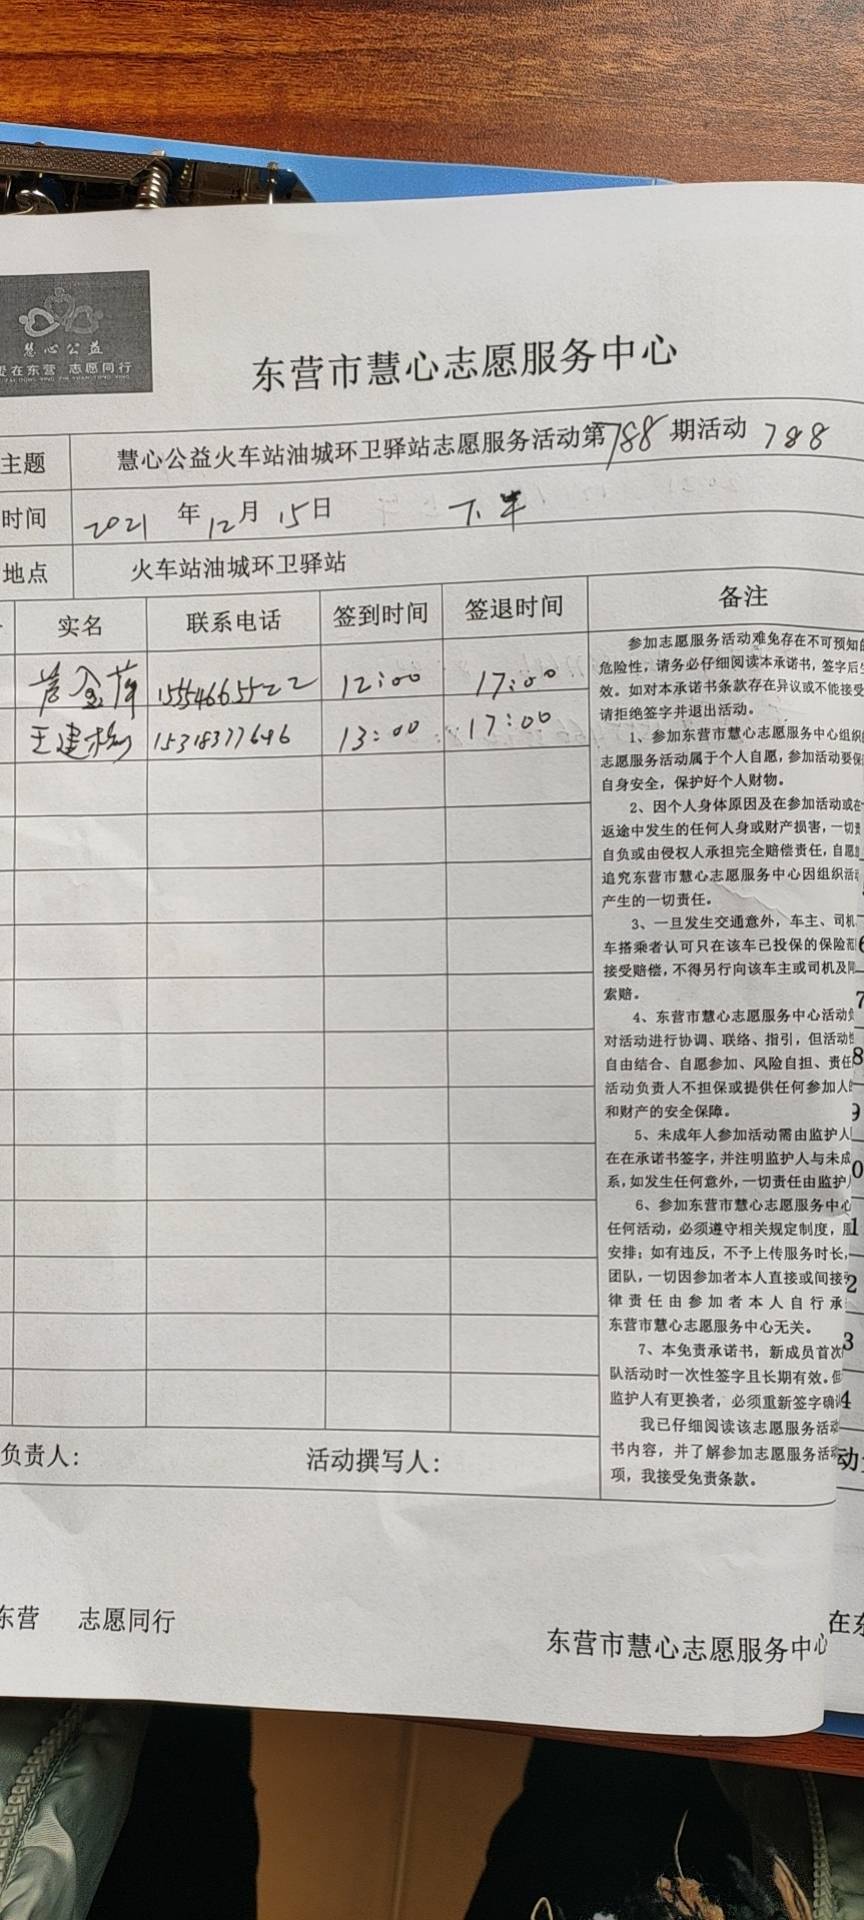 慧心公益
爱在东营 志愿同行
东营市慧心志愿服务中心
主题 慧心公益火车站油城环卫驿站志愿服务活动第788期活动 788
时间 2021年12月15日 下午
地点 火车站油城环卫驿站
实名 联系电话 签到时间 签退时间 备注
金萍 15554665522 12:00 17:00
王建 15318377646 13:00 17:00
参加志愿服务活动难免存在不可预知的
危险性，请务必仔细阅读本承诺书，签字后生
效。如对本承诺书条款存在异议或不能接受
请拒绝签字并退出活动。
1、参加东营市慧心志愿服务中心组织的
志愿服务活动属于个人自愿，参加活动要保
自身安全，保护好个人财物。
2、因个人身体原因及在参加活动或在
返途中发生的任何人身或财产损害，一切责
自负或由侵权人承担完全赔偿责任，自愿
追究东营市慧心志愿服务中心因组织活动
产生的一切责任。
3、一旦发生交通意外，车主、司机
车搭乘者认可只在该车已投保的保险范
接受赔偿，不得另行向该车主或司机及同
索赔。
4、东营市慧心志愿服务中心活动负
对活动进行协调、联络、指引，但活动性
自由结合、自愿参加、风险自担、责任
活动负责人不担保或提供任何参加人的
和财产的安全保障。
5、未成年人参加活动需由监护人
在在承诺书签字，并注明监护人与未成
系，如发生任何意外，一切责任由监护
6、参加东营市慧心志愿服务中心
任何活动，必须遵守相关规定制度，服
安排；如有违反，不予上传服务时长，
团队，一切因参加者本人直接或间接
律责任由参加者本人自行承
东营市慧心志愿服务中心无关。
7、本免责承诺书，新成员首次
队活动时一次性签字且长期有效。但
监护人有更换者，必须重新签字确认
我已仔细阅读该志愿服务活动
书内容，并了解参加志愿服务活动
项，我接受免责条款。
负责人： 活动撰写人：
东营 志愿同行
东营市慧心志愿服务中心
6
7
8
9
0
1
2
3
4
动
在东